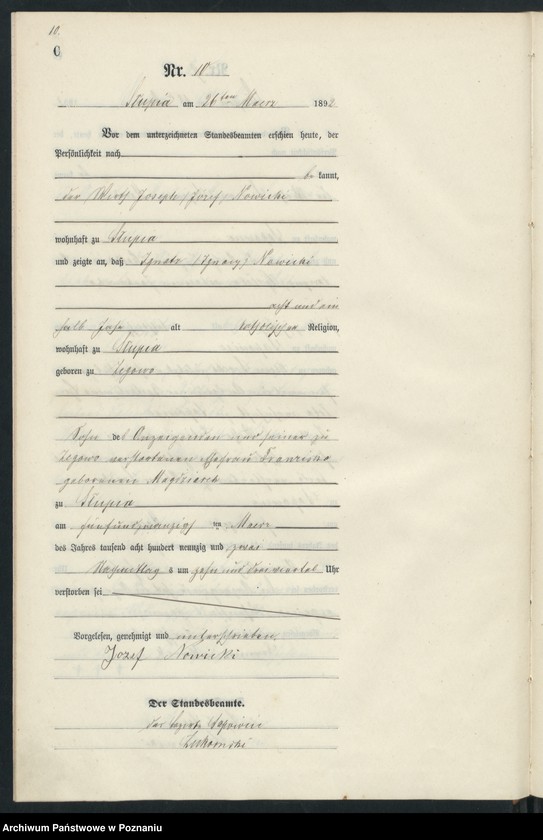 10.
C
Nr. 10
Słupia am 26ten Maerz 1892
Vor dem unterzeichneten Standesbeamten erschien heute, der
Persönlichkeit nach
be kannt,
der Wirth Joseph (Józef) Nowicki
wohnhaft zu Słupia
und zeigte an, daß Ignatz (Ignacy) Nowicki
acht und ein
halb Jahr alt katholischer Religion,
wohnhaft zu Słupia
geboren zu
Sohn des Anzeigenden und seiner zu
verstorbenen Ehefrau Franziska
geborenen
zu Słupia
am fünfundzwanzigsten Maerz
des Jahres tausend acht hundert neunzig und zwei
Nachmittag s um zehn und dreiviertel Uhr
verstorben sei
Vorgelesen, genehmigt und unterschrieben
Jozef Nowicki
Der Standesbeamte.
Archiwum Państwowe w Poznaniu